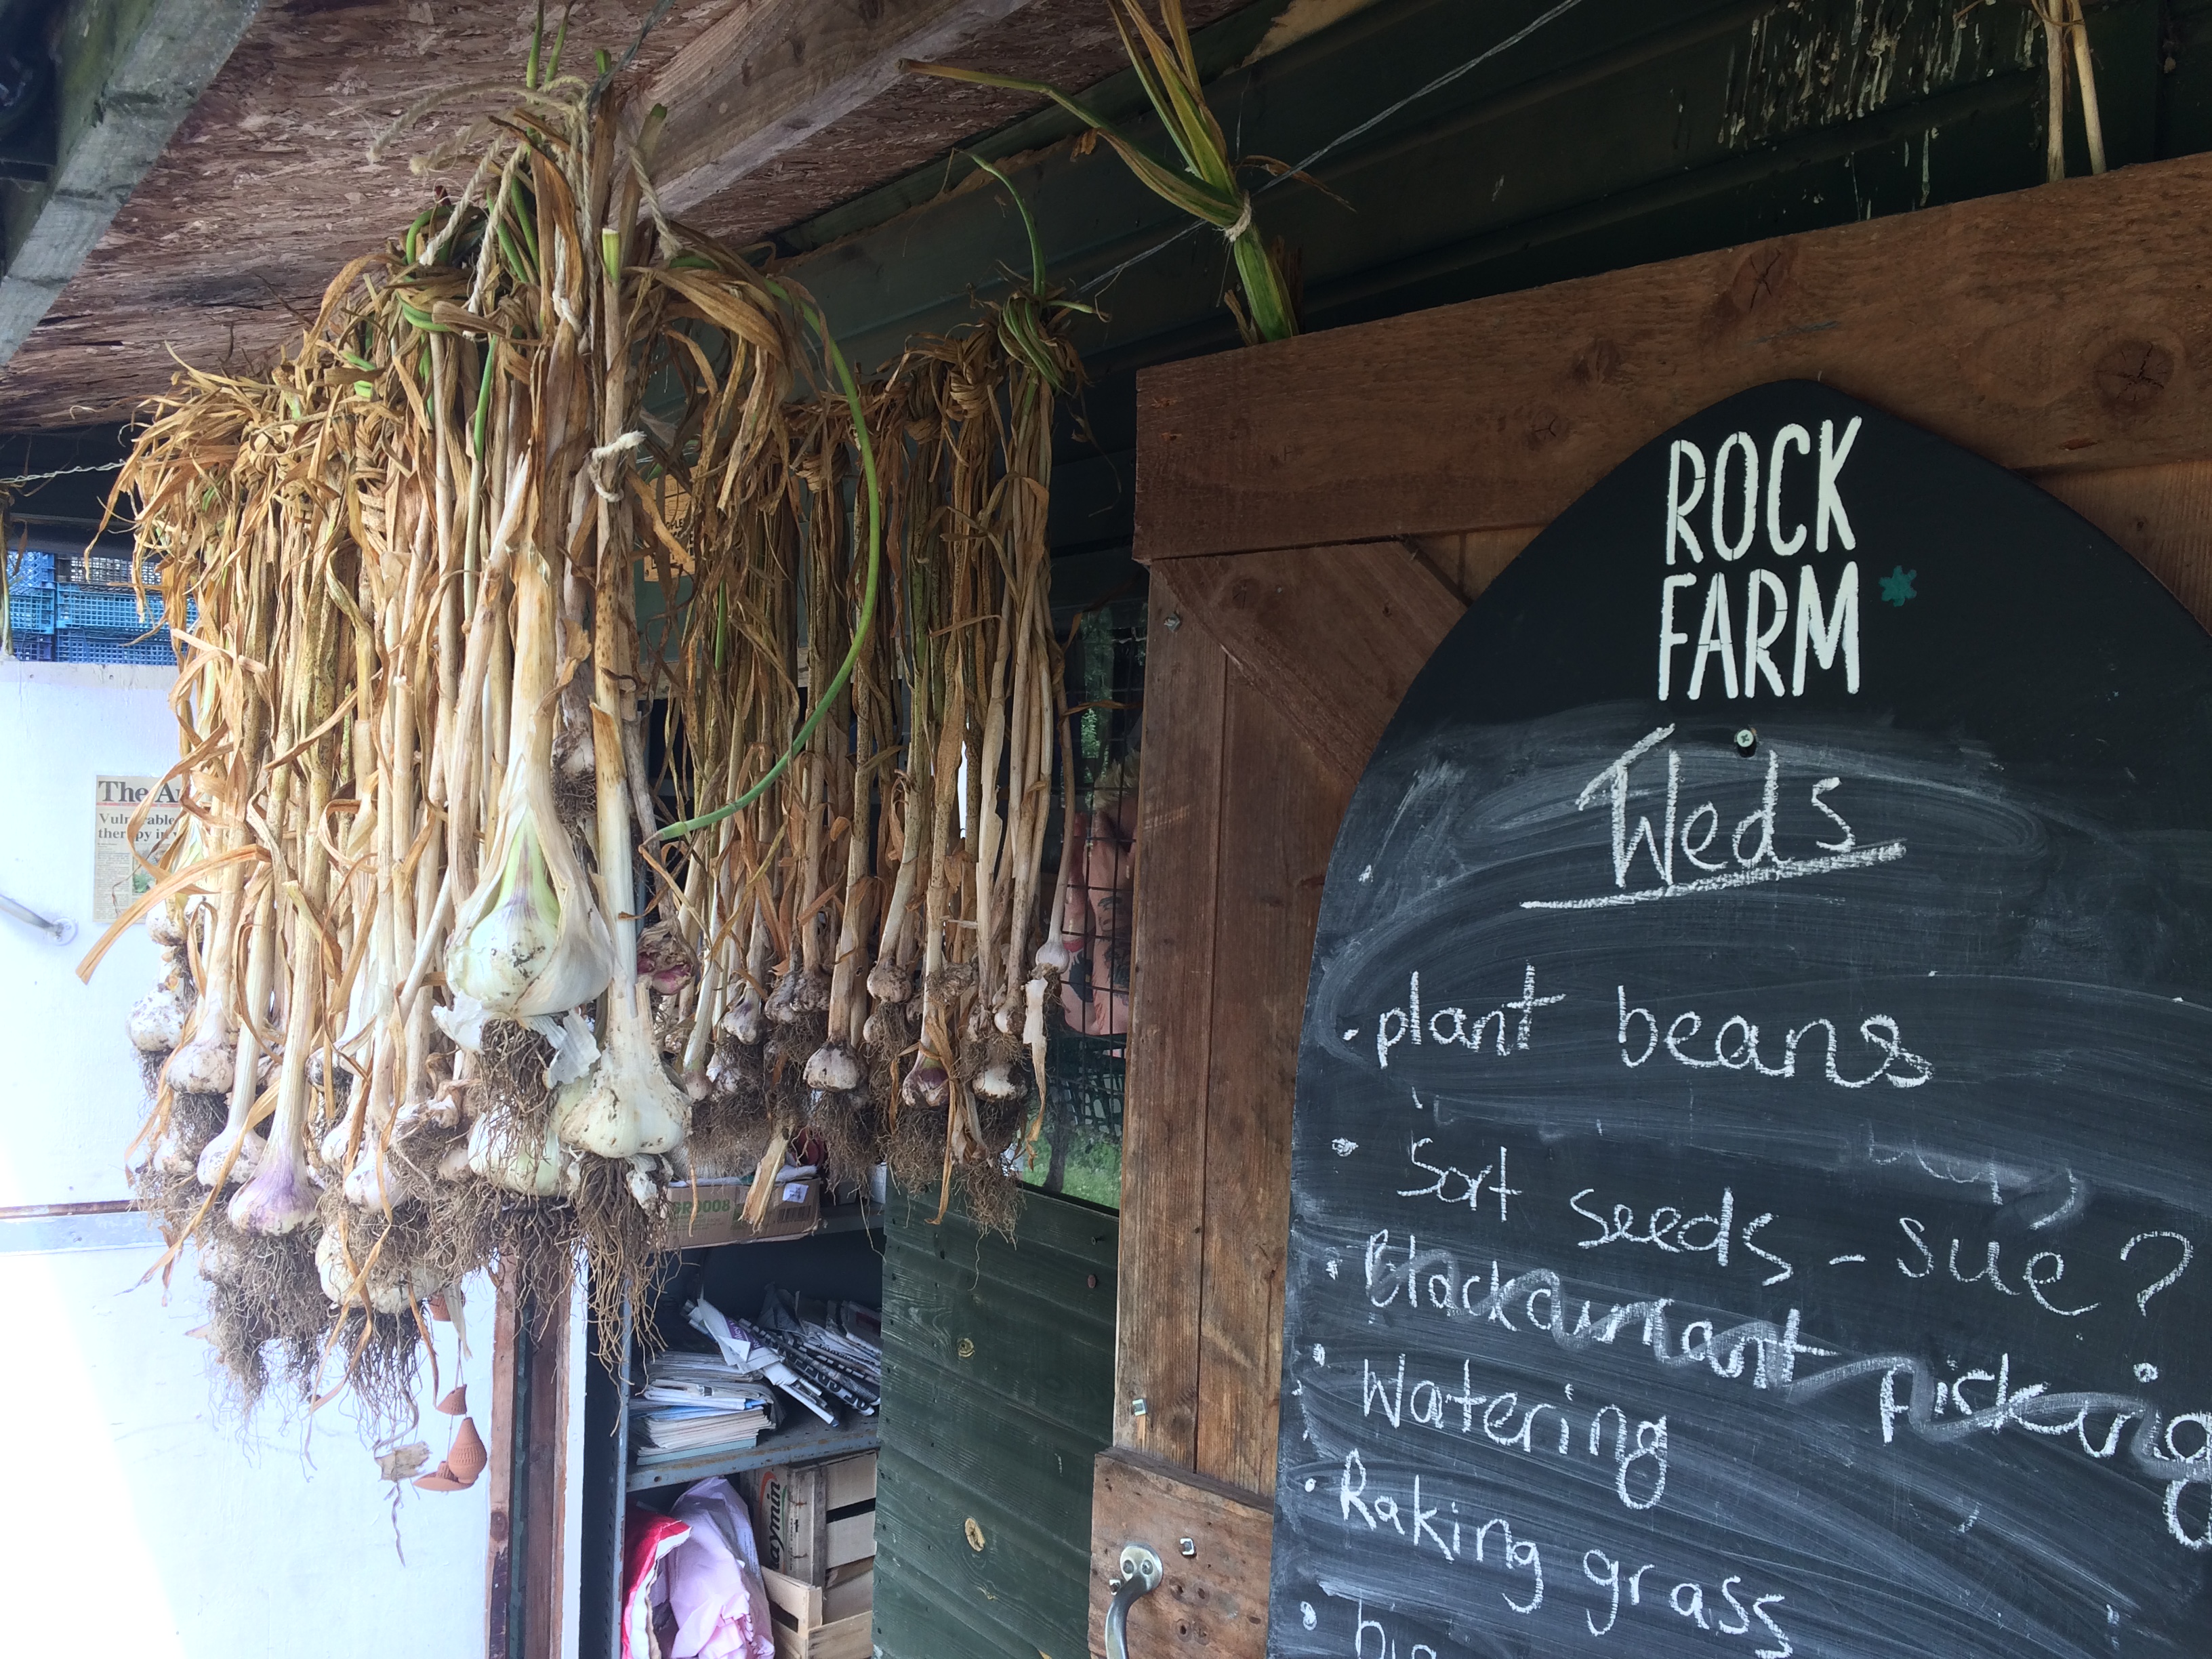 ROCK
FARM
Weds
• plant beans
• Sort seeds - sue?
• Blackcurrant Picking
• Watering
• Raking grass
The
Vulnerable
therapy in
aymin